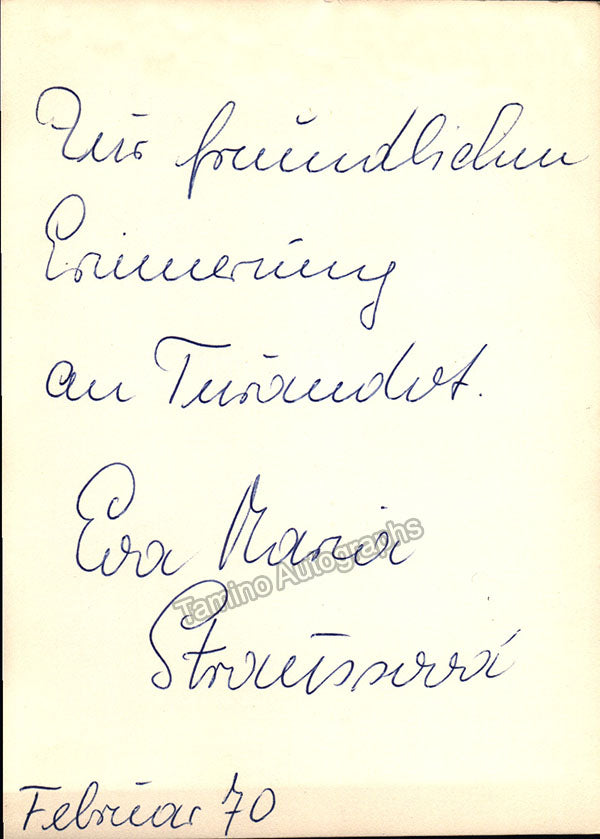 Zur freundlichen
Erinnerung
an Turandot.
Eva Maria
Tamino Autographs
Straussová
Februar 70